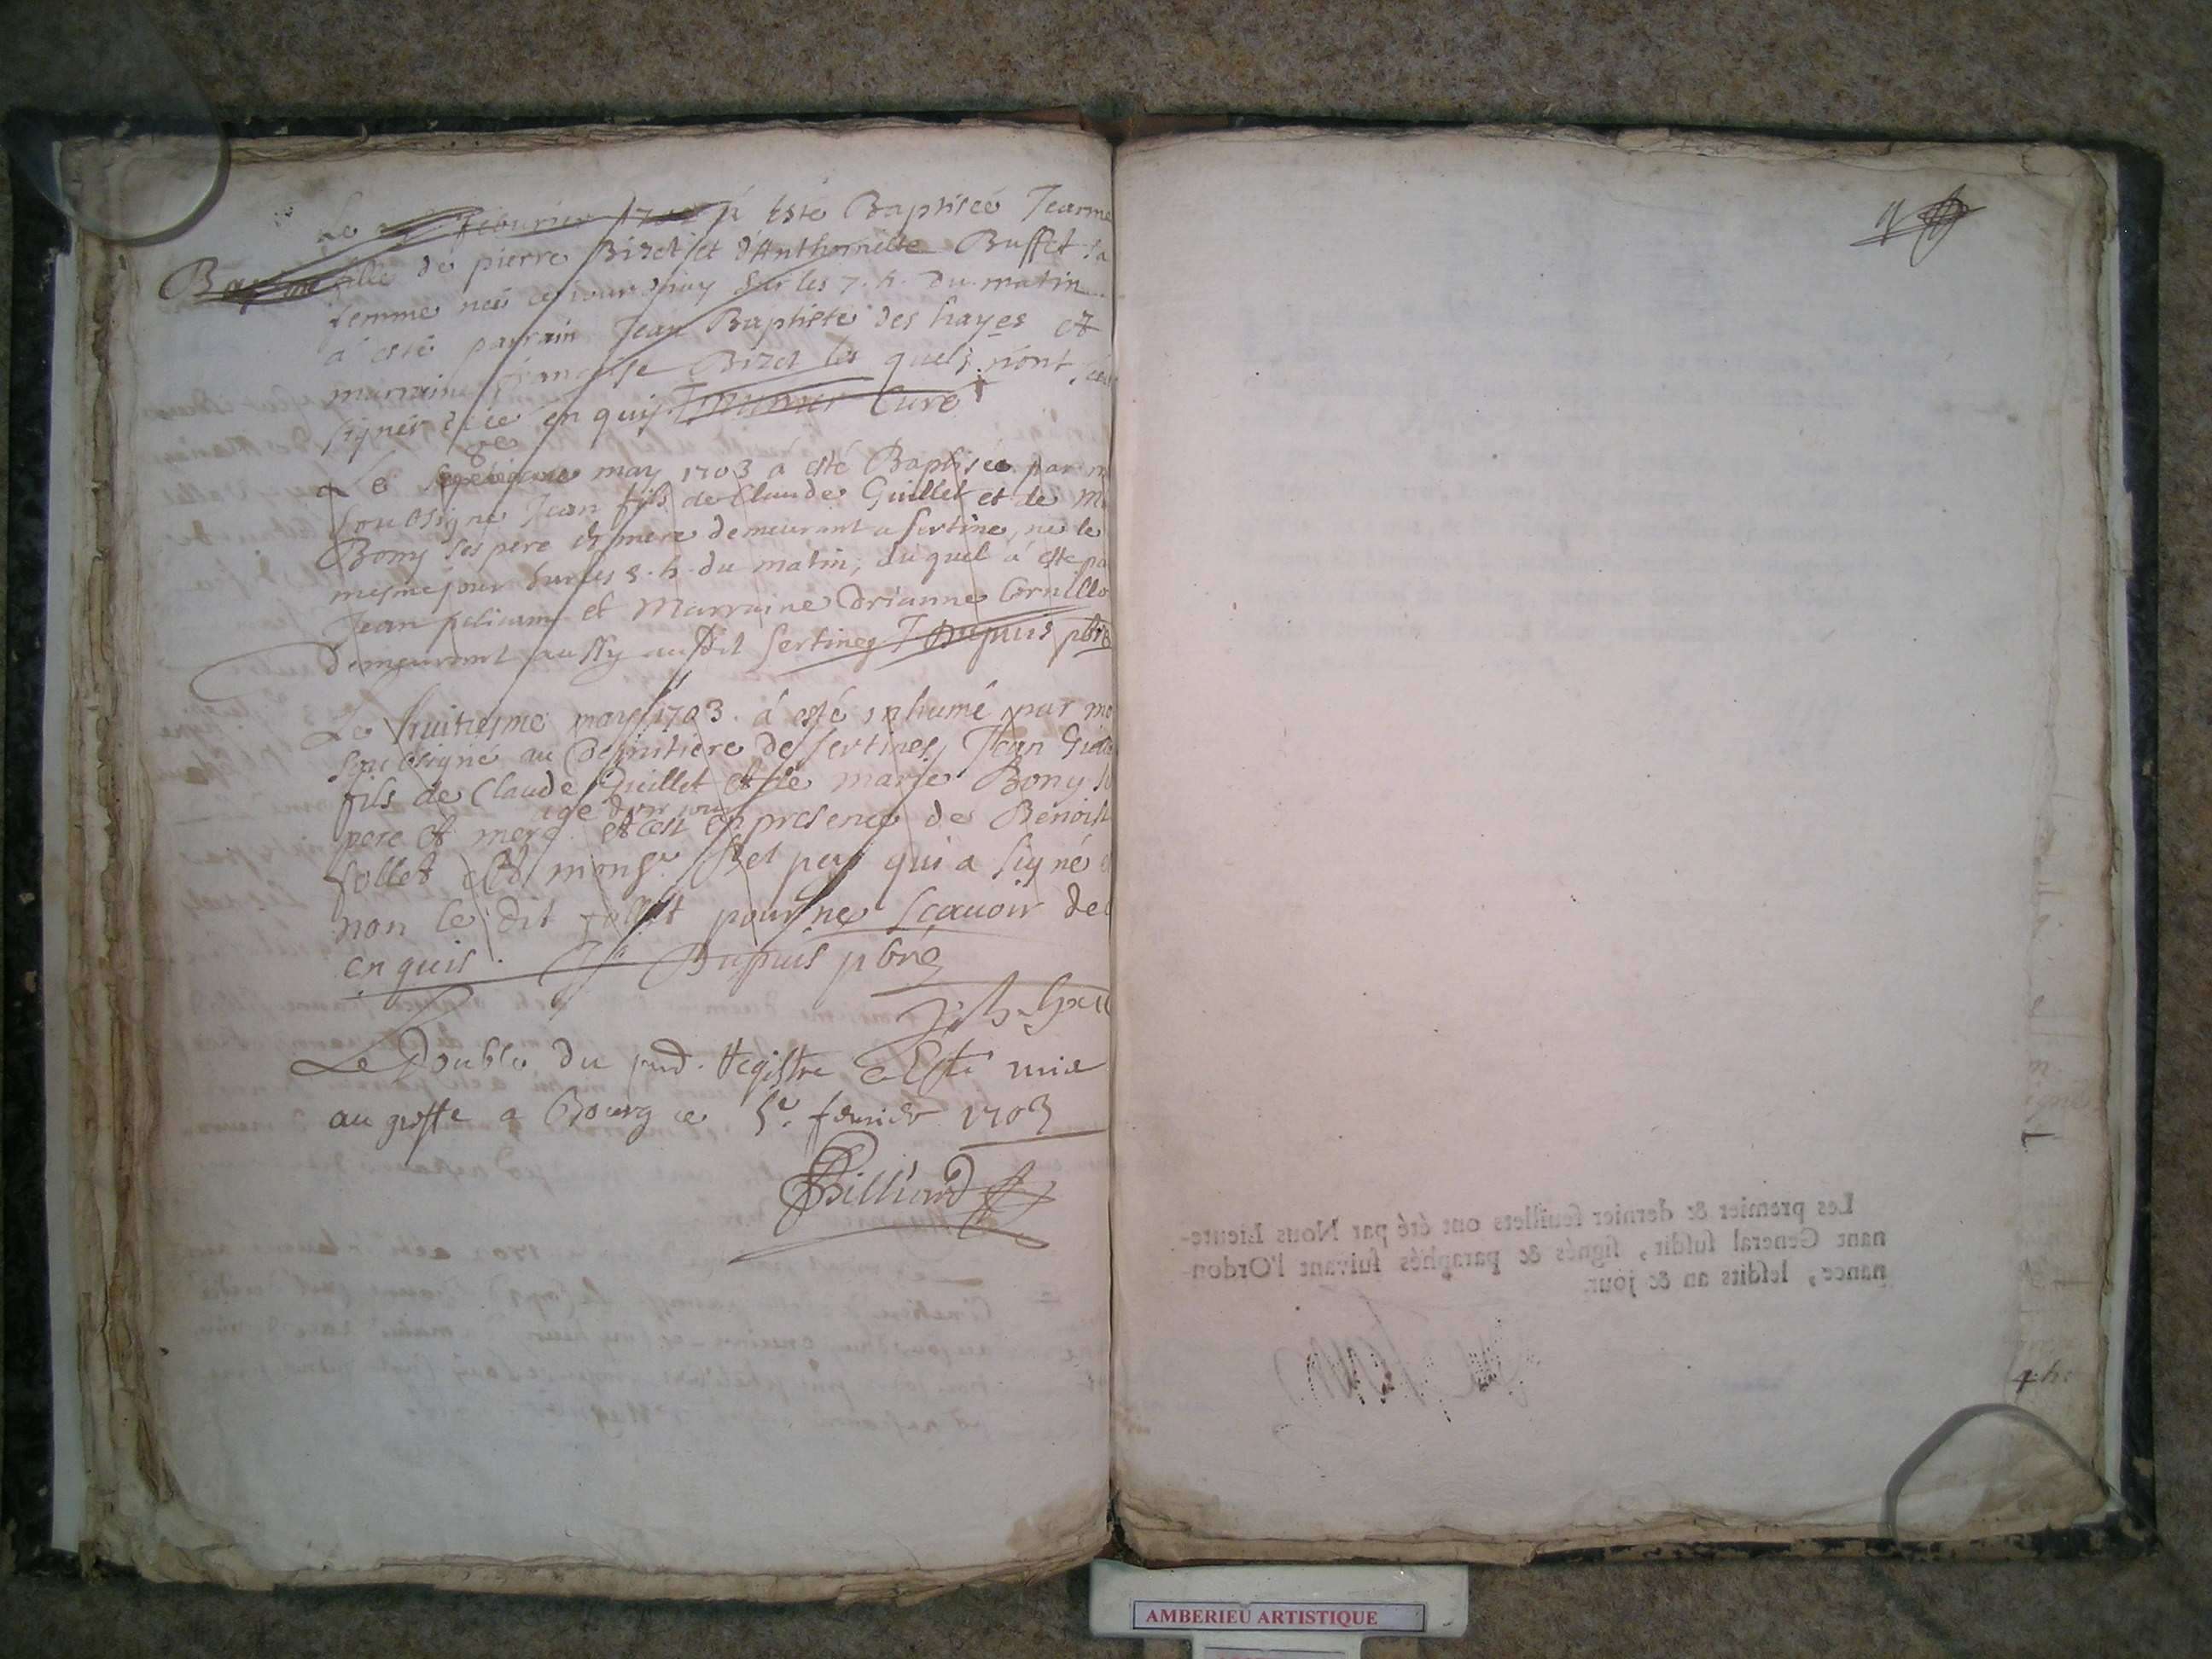 Le febvrier 1703 à Esté Baptiseé Jeanne
fille de pierre Bizet et d'Anthoinette Buffet sa
femme neé ce jourd'huy sur les 7. h. du matin
a esté parrain Jean Baptiste des hayes et
marraine françoise Bizet les quels n'ont sceu
signer de ce enquis Curé
Le may 1703 a esté Baptisée par m
soubsigné Jean fils de Claude Guillet et de M
Bony ses pere et mere demeurant a sertine, né le
mesme jour sur les 8. h. du matin, duquel a esté pa
Jean pelicam et Marraine
Demeurant aussy audit sertines J Dupuis pbre
Le huitiesme may 1703. á esté inhumé par mo
soubsigné au Cemintiere de sertines Jean
fils de Claude Guillet et de marie Bony
agé d'un jour
pere et mere et cest en presence de Benoist
follet et monsr. qui a signé
non le dit follet pour ne scavoir de
enquis. Js Dupuis pbre
Le Double du pnd. Registre a Esté mis
au greffe a Bourg ce 5e. fevrier 1703
Billiard
Les premier & dernier feuillets ont été par Nous Lieute-
nant General susdit, signés & paraphés suivant l'Ordon-
nance, lesdits an & jour.
4 h.
AMBERIEU ARTISTIQUE